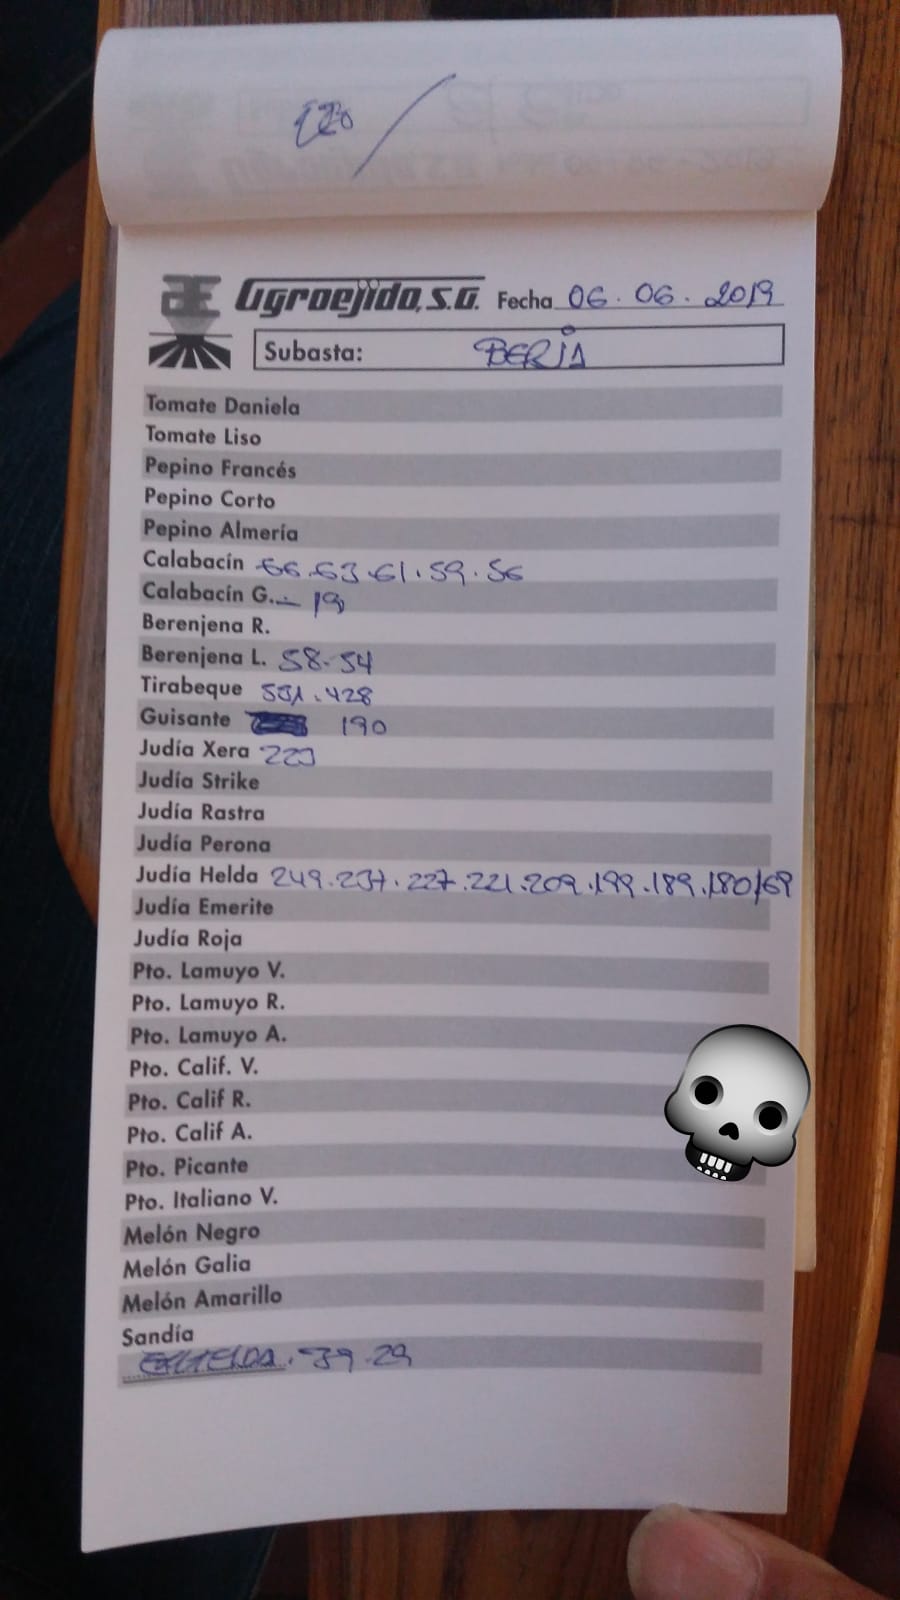 Agroejido, S.A. Fecha 06.06.2019
Subasta: BERJA
Tomate Daniela
Tomate Liso
Pepino Francés
Pepino Corto
Pepino Almería
Calabacín 66.63.61.59.56
Calabacín G. - 19
Berenjena R.
Berenjena L. 58.54
Tirabeque 531.428
Guisante 190
Judía Xera 223
Judía Strike
Judía Rastra
Judía Perona
Judía Helda 249.237.227.221.209.199.189.180/69
Judía Emerite
Judía Roja
Pto. Lamuyo V.
Pto. Lamuyo R.
Pto. Lamuyo A.
Pto. Calif. V.
Pto. Calif R.
Pto. Calif A.
Pto. Picante
Pto. Italiano V.
Melón Negro
Melón Galia
Melón Amarillo
Sandía
39.29